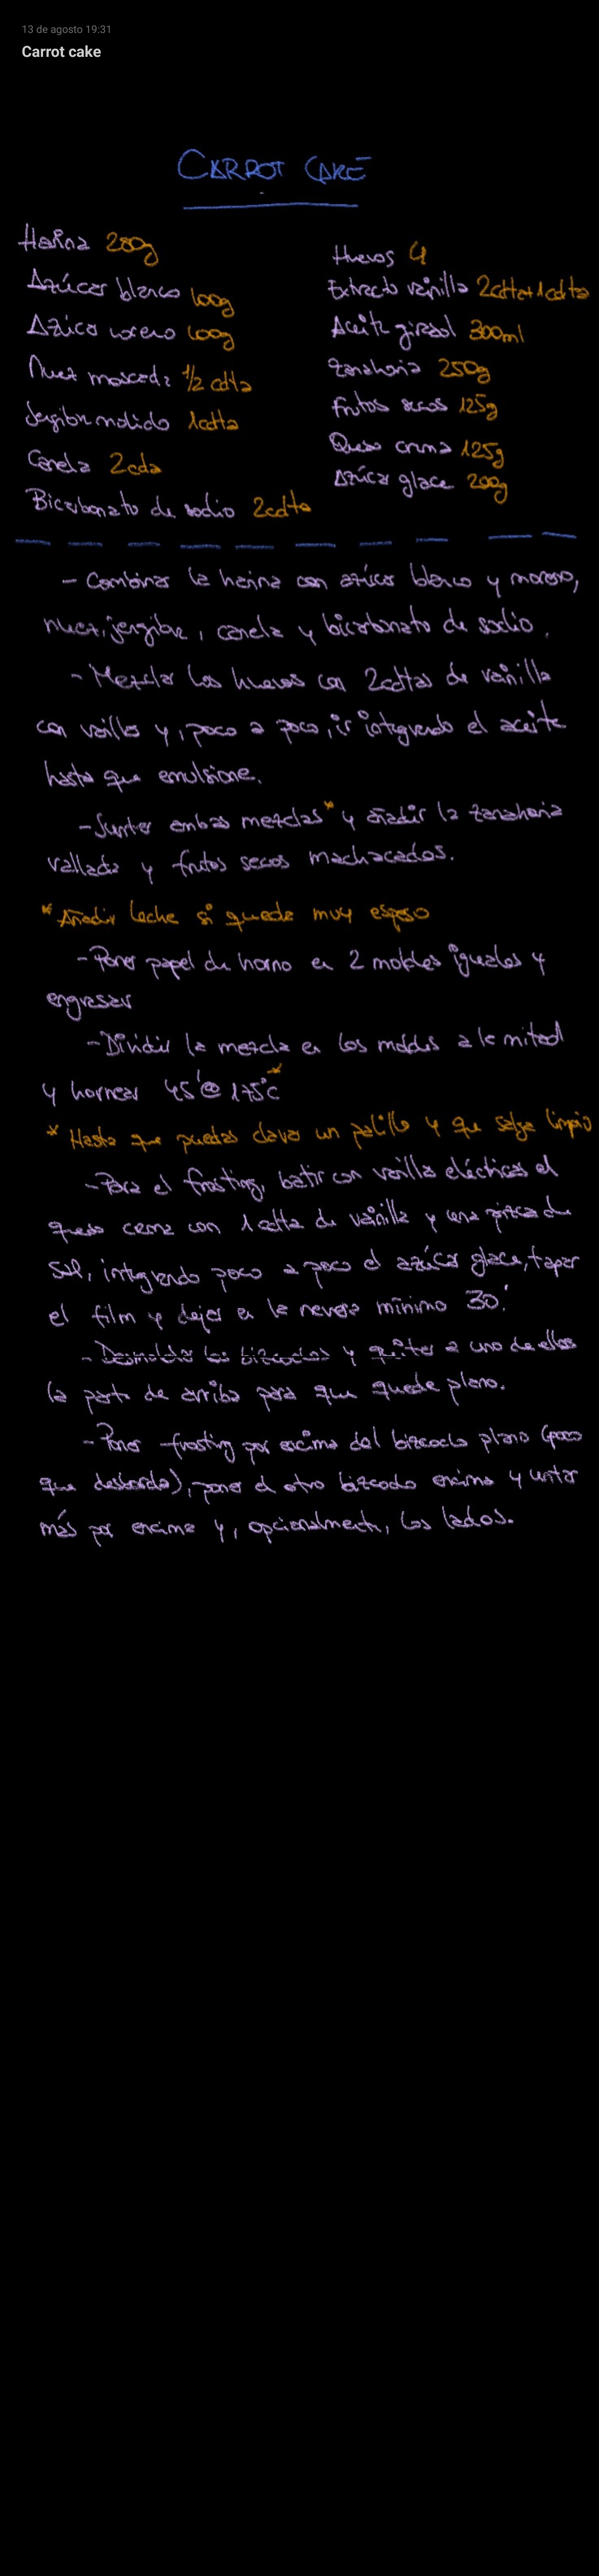 13 de agosto 19:31
Carrot cake
CARROT CAKE
Harina 280g
Azúcar blanco 100g
Azúcar moreno 100g
Nuez moscada 1/2 cdta
Jengibre molido 1cdta
Canela 2cda
Bicarbonato de sodio 2cdta
Huevos 4
Extracto vainilla 2cdta+1cdta
Aceite girasol 300ml
Zanahoria 250g
Frutos secos 125g
Queso crema 125g
Azúcar glace 200g
- Combinar la harina con azúcar blanco y moreno,
nuez, jengibre, canela y bicarbonato de sodio.
- Mezclar los huevos con 2cdtas de vainilla
con varillas y, poco a poco, ir integrando el aceite
hasta que emulsione.
- Juntar ambas mezclas* y añadir la zanahoria
rallada y frutos secos machacados.
* Añadir leche si queda muy espeso
- Poner papel de horno en 2 moldes iguales y
engrasar
- Dividir la mezcla en los moldes a la mitad
y hornear 45' @ 175°C*
* Hasta que puedas clavar un palillo y que salga limpio
- Para el frosting, batir con varillas eléctricas el
queso crema con 1 cdta de vainilla y una pizca de
sal, integrando poco a poco el azúcar glace, tapar
el film y dejar en la nevera mínimo 30'.
- Desmoldar los bizcochos y quitar a uno de ellos
la parte de arriba para que quede plano.
- Poner frosting por encima del bizcocho plano (poco
que desborda), poner el otro bizcocho encima y untar
más por encima y, opcionalmente, los lados.